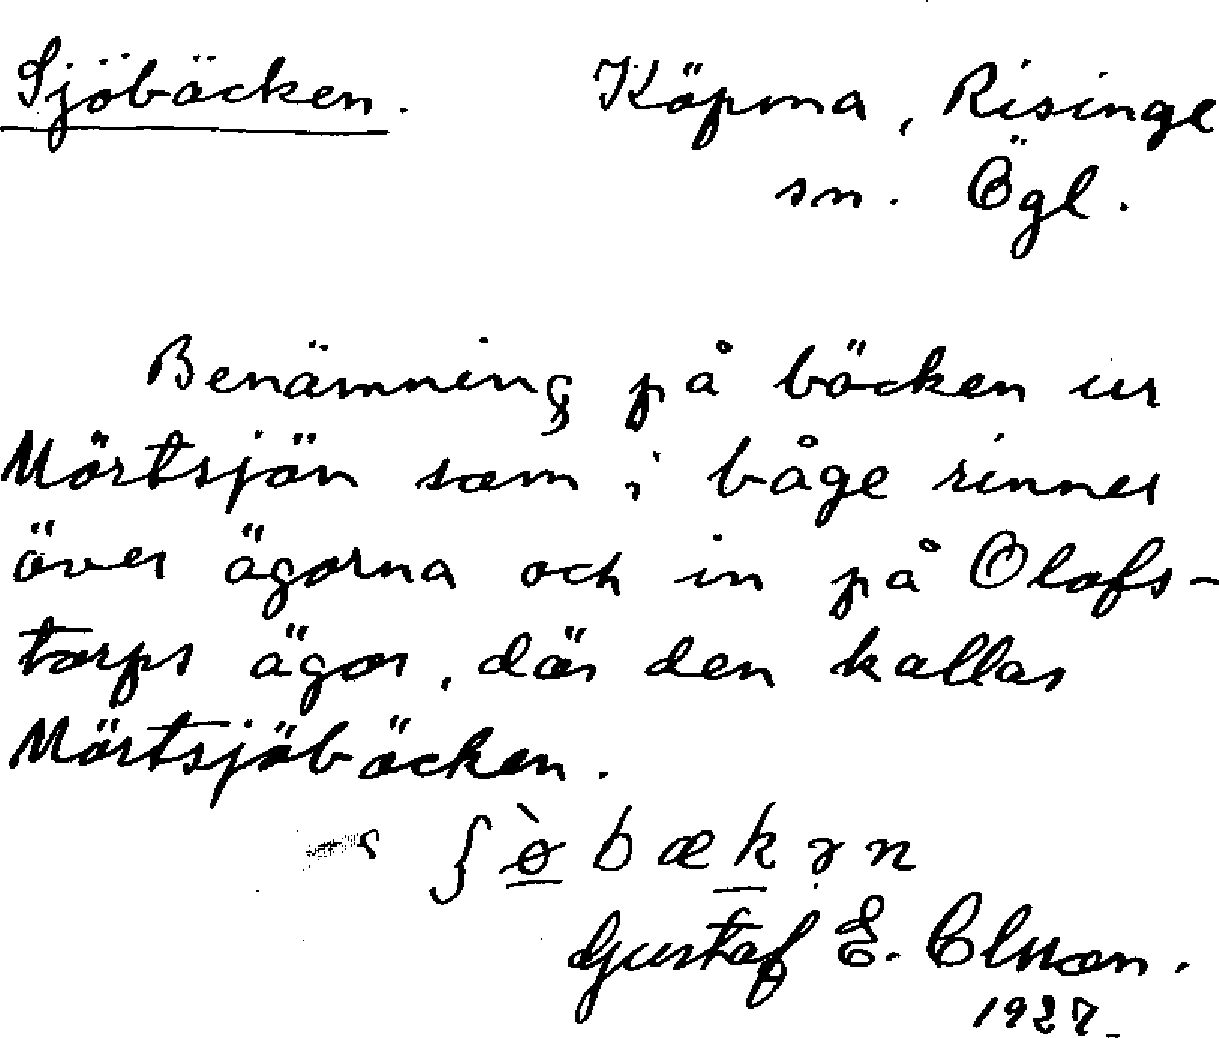 Sjöbäcken. Köpma, Risinge
sn. Ögl.
Benämning på bäcken ur
Mörtsjön som i båge rinner
över ägorna och in på Olofs-
torps ägor, där den kallas
Mörtsjöbäcken.
ʃø̀bækɤn
Gustaf E. Olsson.
1927